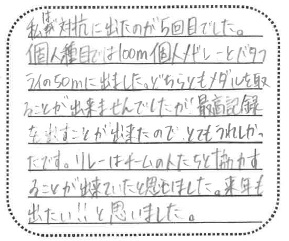 私は対抗に出たのが5回目でした。
個人種目では100m個人メドレーとバタフ
ライの50mに出ました。どちらともメダルを取
ることが出来ませんでしたが最高記録
を出すことが出来たのでとてもうれしかっ
たです。リレーはチームの人たちと協力す
ることが出来ていたと思いました。来年も
出たい!!と思いました。